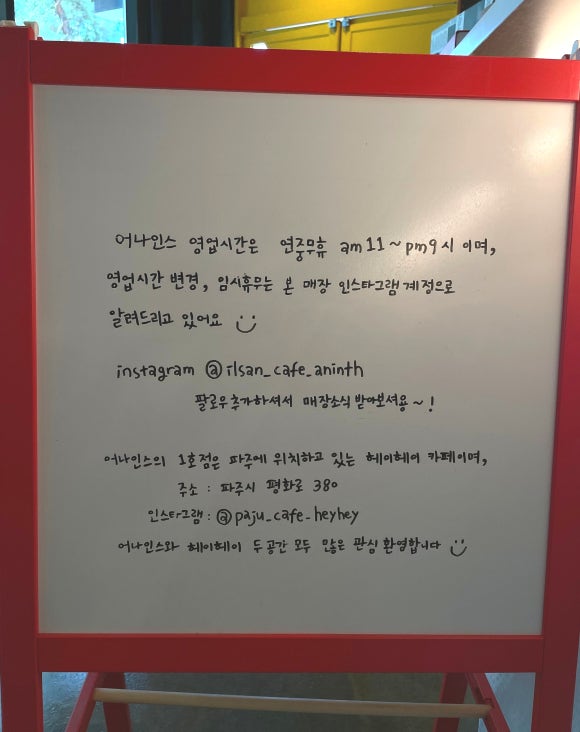 어나인스 영업시간은 연중무휴 am11~pm9시 이며,
영업시간 변경, 임시휴무는 본 매장 인스타그램 계정으로
알려드리고 있어요
instagram @ilsan_cafe_aninth
팔로우추가하셔서 매장소식 받아보셔용~!
어나인스의 1호점은 파주에 위치하고 있는 헤이헤이 카페이며,
주소 : 파주시 평화로 380
인스타그램 : @paju_cafe_heyhey
어나인스와 헤이헤이 두공간 모두 많은 관심 환영합니다